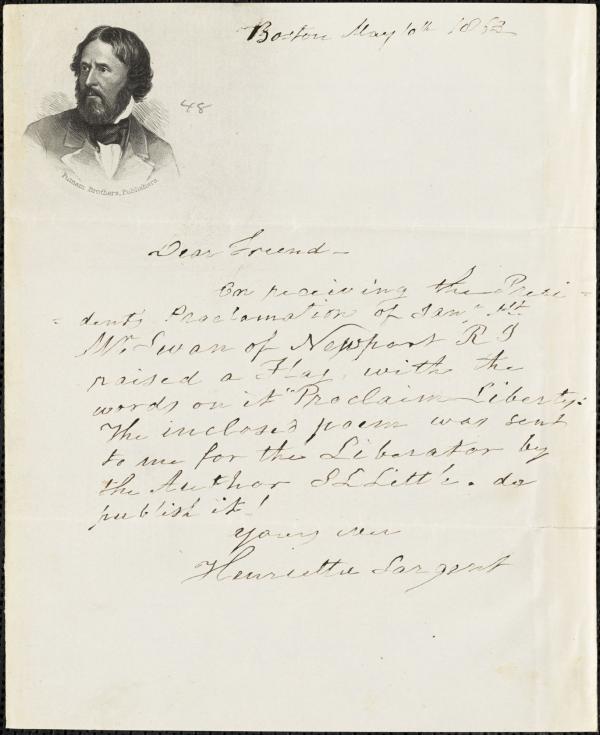 Boston May 10th 1863
48
Putnam Brothers, Publishers.
Dear Friend -
On receiving the Presi-
- dent's Proclamation of Jany 1st
Mr. Swan of Newport R I
raised a Flag, with the
words on it "Proclaim Liberty."
The inclosed poem was sent
to me for the Liberator by
the Author S L Little. do
publish it!
Yours ever
Henrietta Sargent